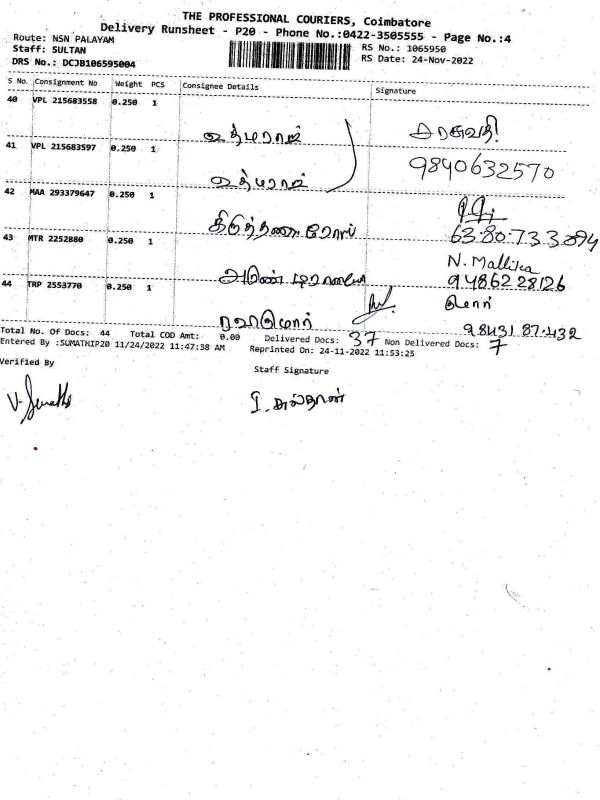 THE PROFESSIONAL COURIERS, Coimbatore
Delivery Runsheet - P20 - Phone No.:0422-3505555 - Page No.:4
Route: NSN PALAYAM
RS No.: 1065950
Staff: SULTAN
RS Date: 24-Nov-2022
DRS No.: DCJB106595004
S No. Consignment No Weight PCS Consignee Details Signature
40 VPL 215683558 0.250 1
சரசுவதி
41 VPL 215683597 0.250 1
9840632570
42 MAA 293379647 0.250 1
43 MTR 2252880 0.250 1
N. Mallika
9486228126
44 TRP 2553770 0.250 1
98431 87432
Total No. Of Docs: 44 Total COD Amt: 0.00 Delivered Docs: 37 Non Delivered Docs: 7
Entered By :SUMATHIP20 11/24/2022 11:47:38 AM Reprinted On: 24-11-2022 11:53:25
Verified By
Staff Signature
I. சுல்தான்